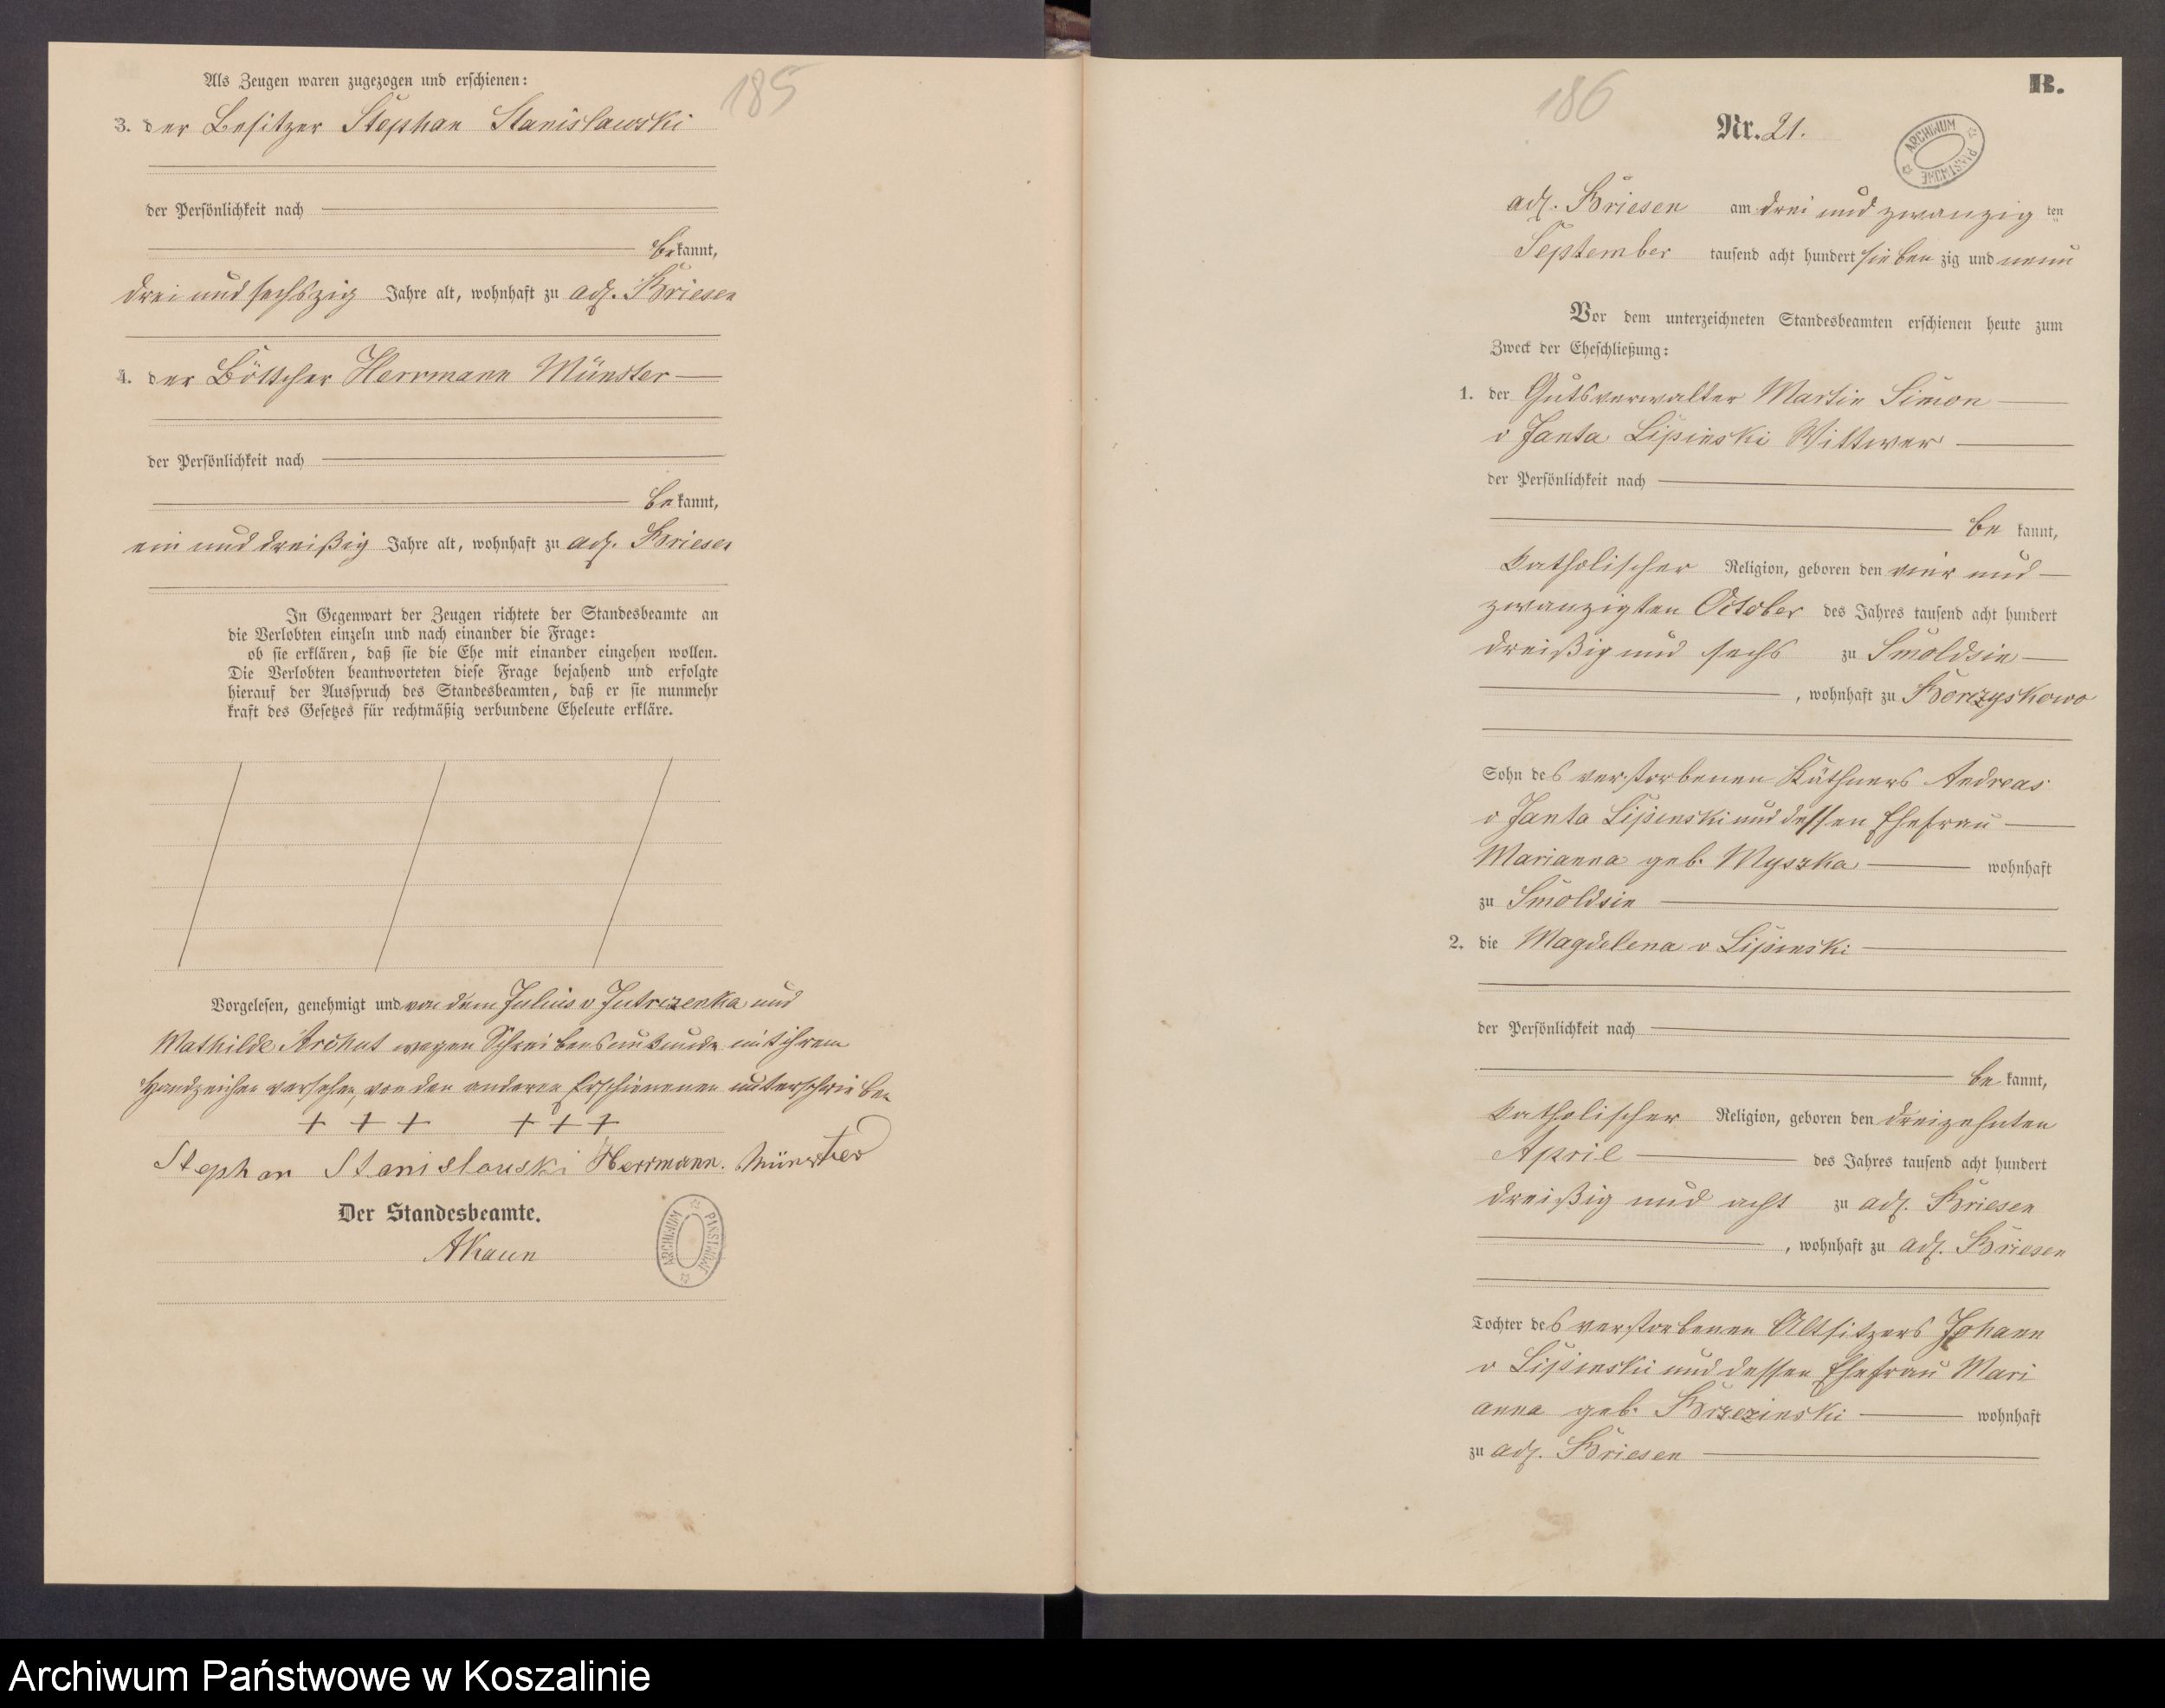 185
Als Zeugen waren zugezogen und erschienen:
3. der Besitzer Stephan Stanislawski
der Persönlichkeit nach
bekannt,
drei und sechszig Jahre alt, wohnhaft zu adl. Briesen
4. der Böttcher Herrmann Münster
der Persönlichkeit nach
bekannt,
ein und dreißig Jahre alt, wohnhaft zu adl. Briesen
In Gegenwart der Zeugen richtete der Standesbeamte an
die Verlobten einzeln und nach einander die Frage:
ob sie erklären, daß sie die Ehe mit einander eingehen wollen.
Die Verlobten beantworteten diese Frage bejahend und erfolgte
hierauf der Ausspruch des Standesbeamten, daß er sie nunmehr
kraft des Gesetzes für rechtmäßig verbundene Eheleute erkläre.
Vorgelesen, genehmigt und von dem Julius v Jutrczenka und
Mathilde Archut wegen Schreibensunkunde mit ihrem
Handzeichen versehen, von den anderen Erschienenen unterschrieben
+ + + + + +
Stephan Stanislauski Herrmann. Münster
Der Standesbeamte.
AKaun
ARCHIWUM PAŃSTWOWE
186
B.
Nr. 21.
ARCHIWUM PAŃSTWOWE
adl. Briesen am drei und zwanzig ten
September tausend acht hundert siebenzig und neun
Vor dem unterzeichneten Standesbeamten erschienen heute zum
Zweck der Eheschließung:
1. der Gutsverwalter Martin Simon
v Janta Lipinski Wittwer
der Persönlichkeit nach
be kannt,
katholischer Religion, geboren den vier und
zwanzigten October des Jahres tausend acht hundert
dreißig und sechs zu Smoldsin
, wohnhaft zu Borczyskowo
Sohn des verstorbenen Käthners Andreas
v Janta Lipinski und dessen Ehefrau
Marianna geb. Myszka wohnhaft
zu Smoldsin
2. die Magdelena v Lipinski
der Persönlichkeit nach
be kannt,
katholischer Religion, geboren den dreizehnten
April des Jahres tausend acht hundert
dreißig und acht zu adl. Briesen
, wohnhaft zu adl. Briesen
Tochter des verstorbenen Altsitzers Johann
v Lipinski und dessen Ehefrau Mari
anna geb. Brzezinski wohnhaft
zu adl. Briesen
Archiwum Państwowe w Koszalinie